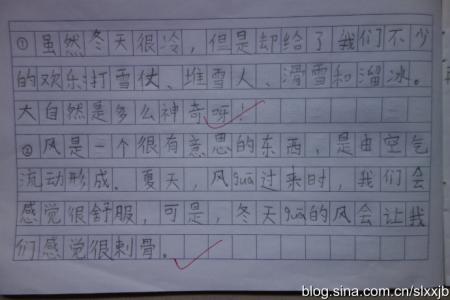 ①虽然冬天很冷，但是却给了我们不少
的欢乐打雪仗、堆雪人、滑雪和溜冰。
大自然是多么神奇呀！
②风是一个很有意思的东西，是由空气
流动形成．夏天，风guā过来时，我们会
感觉很舒服，可是，冬天guā的风会让我
们感觉很刺骨。
blog.sina.com.cn/slxxjb